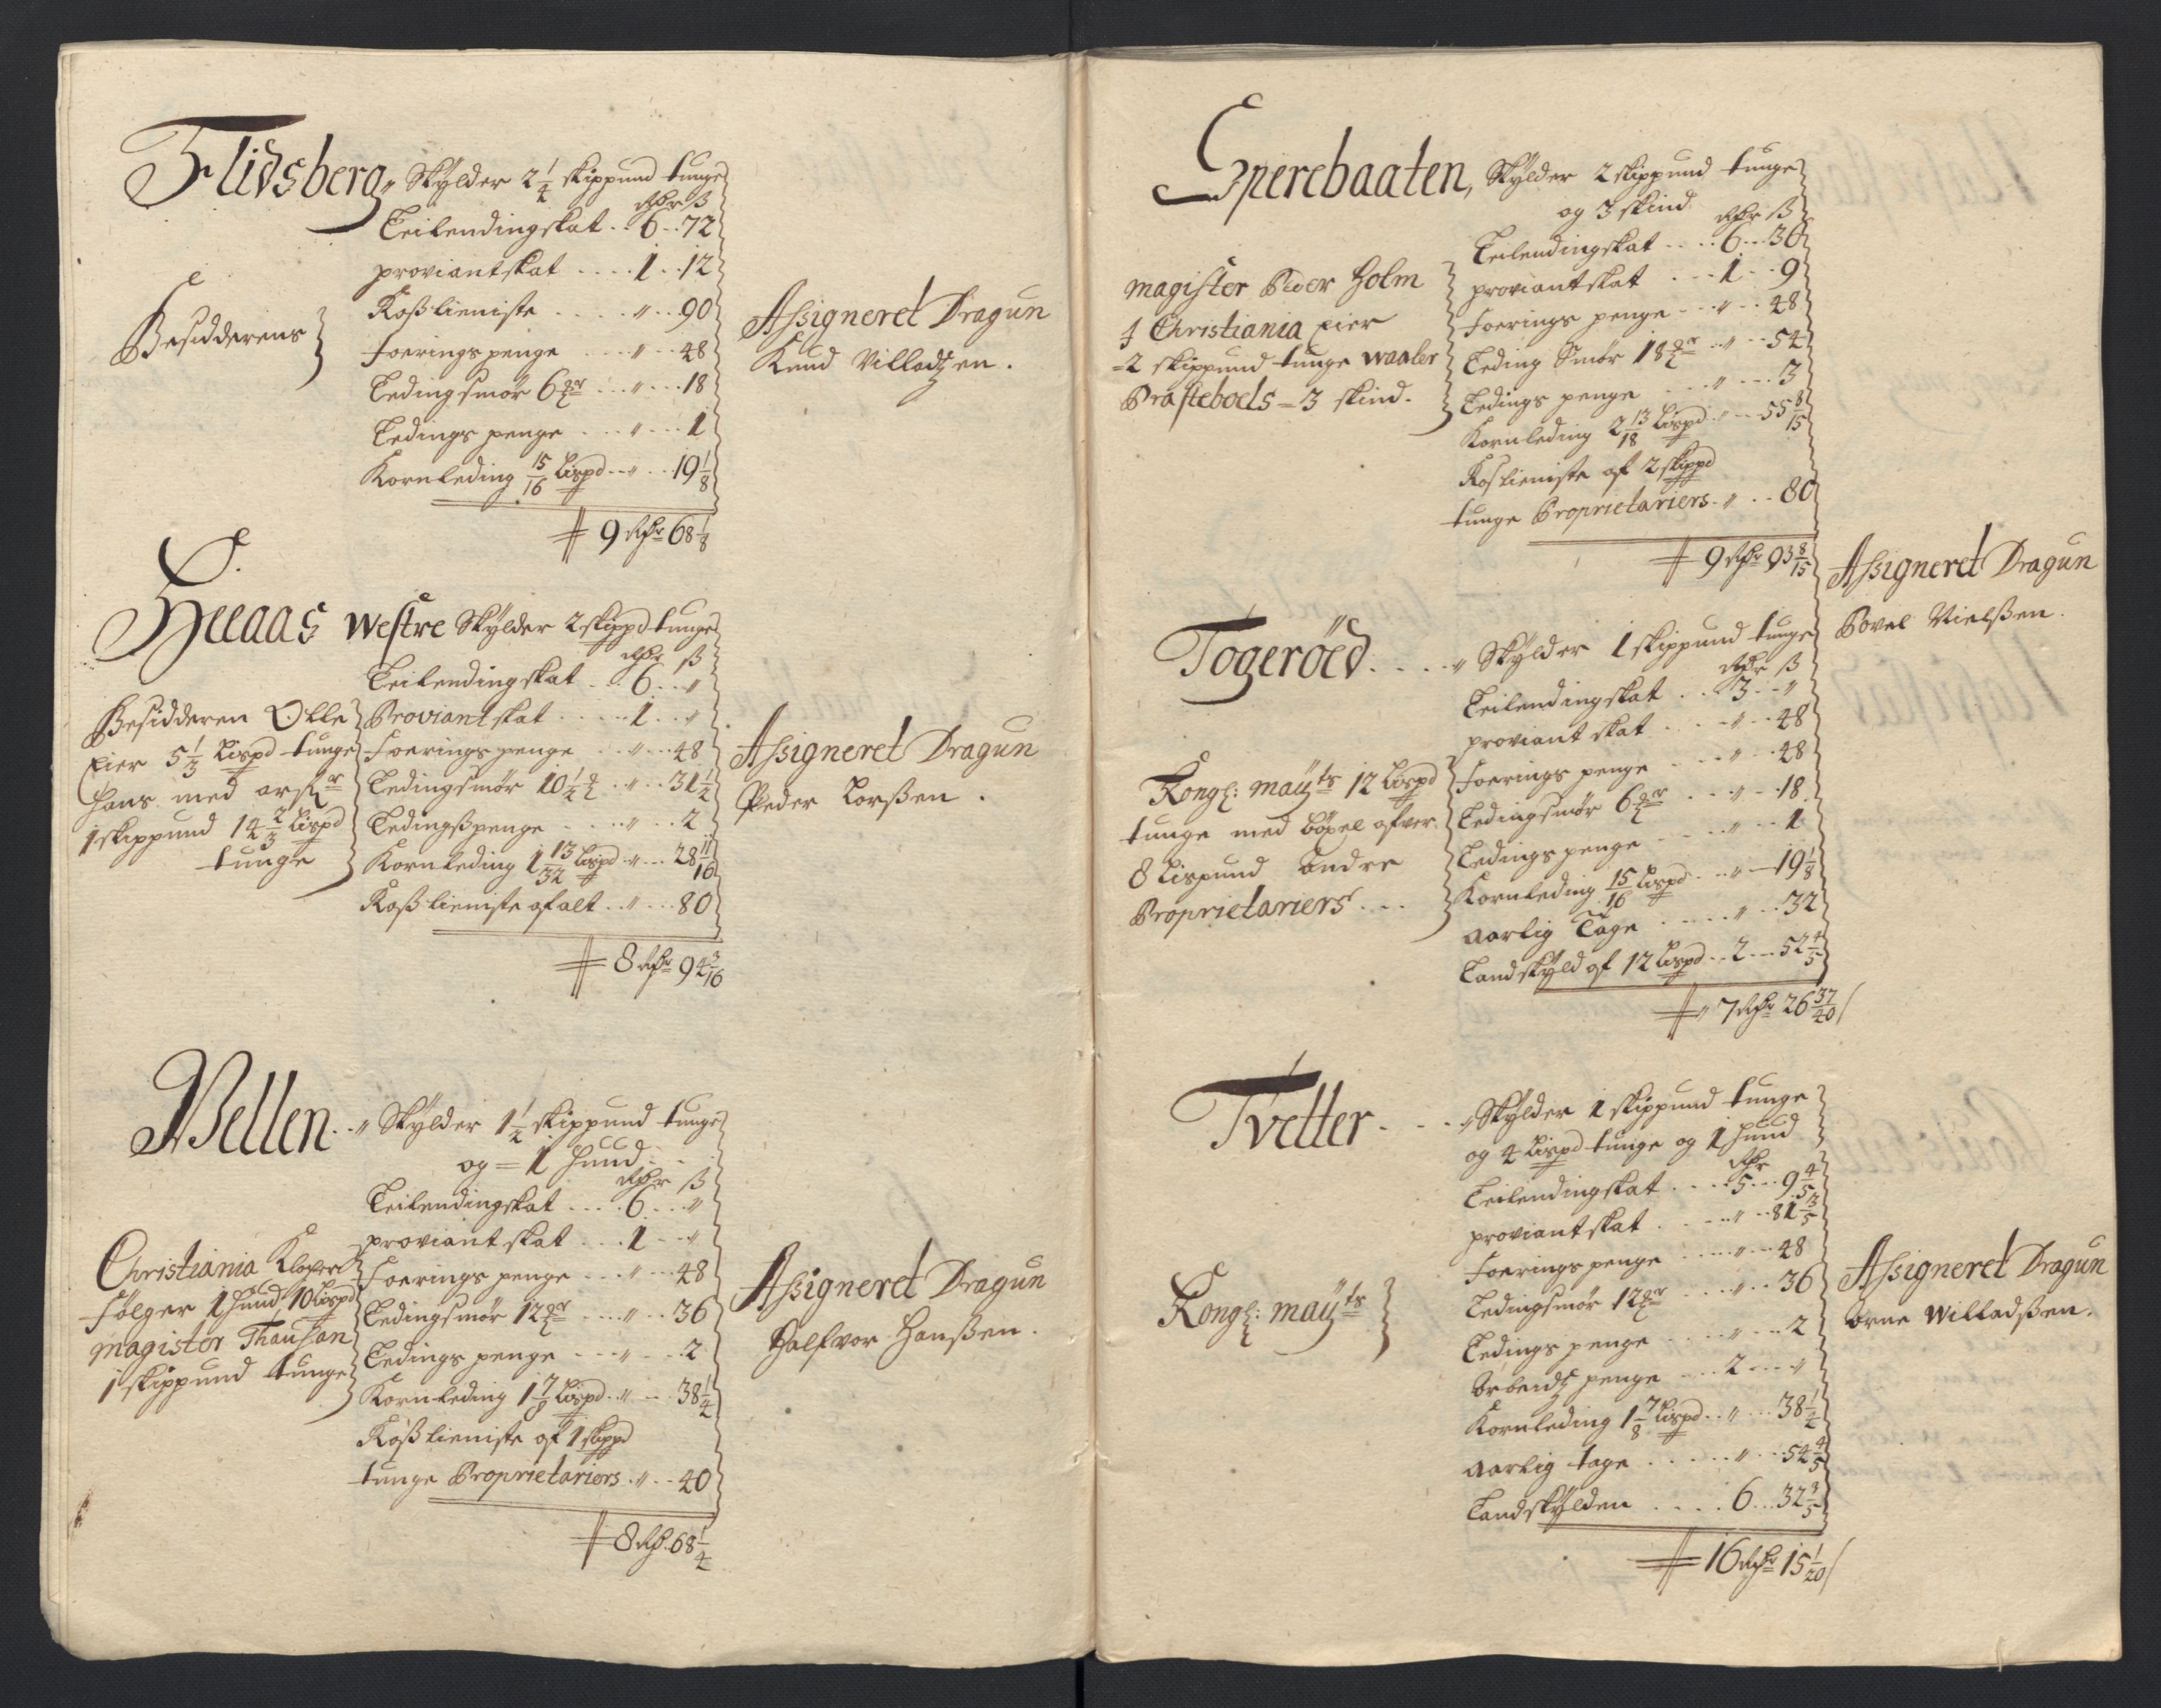 Flidsberg „ Skÿlder 2 1/4 skippund tunge
Rdr ß
Leilendingskat . . 6 . . 72
proviantskat . . . . 1 . . 12
Roßtieniste . . . . „ . . 90
Foeringspenge . . . „ . . 48
Ledingsmör 6 mr . . „ . . 18
Ledings penge . . . „ . . 1
Kornleding 15/16 Lispd . . „ . . 19 1/8
9 Rdr 68 1/8
Besidderens
Assigneret Dragun
Knud Villadtzen .
Westre Skÿlder 2 skippd tunge
Rdr ß
Leilendingskat . . 6 . . „
Proviantskat . . . . 1 . . „
Foeringspenge . . „ . . 48
Ledingsmör 10 1/2 mr . . „ . . 31 1/2
Ledingßpenge . . . „ . . 2
Kornleding 1 13/32 Lispd . „ . . 28 11/16
Roßtieniste af alt . . „ . . 80
8 Rdr 94 3/16
Besidderen Olle
Eier 5 1/3 Lispd tunge
Hans med
1 skippund 14 2/3 Lispd
tunge
Assigneret Dragun
Peder Lorßen .
Wellen . . „ Skÿlder 1 1/2 skippund tunge
og = 1 Hund
Rdr ß
Leilendingskat . . . . 6 . . „
proviantskat . . . 1 . . „
Foerings penge . . . „ . . 48
Ledingsmör 12 mr . . . „ . . 36
Ledings penge . . . „ . . 2
Kornleding 1 7/8 Lispd . . „ . . 38 1/4
Roßtieniste af 1 skippd
tunge Proprietariers . „ . . 40
8 Rd. 68 1/4
Christiania
Følger 1 Hund, 10 Lispd
magister
1 skippund tunge
Assigneret Dragun
Halfvor Hanßen .
Sperebaaten, Skÿlder 2 skippund tunge
og 3 skind
Rdr ß
Leilendingskat . . . . 6 . . 36
proviantskat . . . 1 . . 9
Foerings penge . . „ . . 48
Leding Smör 18 mr . . „ . . 54
Ledings penge . . . „ . . . 3
Kornleding 2 13/18 Lispd . „ . . 55 8/15
Rostieniste af 2 skippd
tunge Proprietariers . „ . . 80
9 Rdr 93 8/15
magister Peder Holm
i Christiania Eier
= 2 skippund tunge waaler
Præsteboels = 3 skind .
Assigneret Dragun
Povel Nielßen .
Togeröed . . . . „ Skÿlder 1 skippund tunge
Rdr ß
Leilendingskat . . 3 . . „
proviant skat . . . „ . . 48
Foerings penge . . . „ . . 48
Ledingsmör 6 mr . . . „ . . 18
Ledingspenge . . . . „ . . 1
Kornleding 15/16 Lispd . . „ . . 19 1/8
aarlig Tage . . . . „ . . 32
Landskÿld af 12 Lispd . . 2 . . . 52 4/5
„ 7 Rdr 26 37/40
Kongl: maÿts 12 Lispd
tunge med böxel ofver
8 Lispund andre
Proprietariers . . .
Tvetter . . . „ Skÿlder 1 skippund tunge
og 4 Lispd tunge og 1 Hund
Rdr
Leilendingskat . . . . 5 . . . 9 4/5
proviantskat . . . . „ . . 81 3/5
Foeringspenge . . . . „ . . 48
Ledingsmör 12 mr . . . „ . . 36
Ledings penge . . . . „ . . . 2
Arbeidtz penge . . . 2 . . . „
Kornleding 1 7/8 Lispd . . „ . . . 38 1/4
aarlig tage . . . . . „ . . 54 4/5
Landskÿlden . . . . 6 . . . 32 3/5
16 Rdr 15 1/20
Kongl: maÿts
Assigneret Dragun
Arne Willadßen .